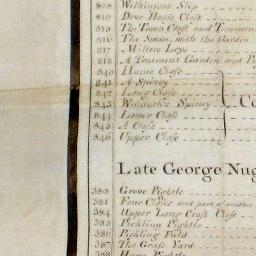 808 Wilkinsons Slip
810 Dove House Close
815 The Town Croft and Tenemen
816 The Swan, with the Garden
817 Millers Leys
818 A Tenement Garden and P
840 Home Close
841 A Spinney
842 Long Close
843 Spinney
844 Lower Close
845 A Close
846 Upper Close
Late George Nug
380 Grove Pightle
381 Four Closes and part of another
384 Upper Long Croft Close
385 Pickling Pightle
386 Pickling Field
387 The Grass Yard
388 Home Pightle